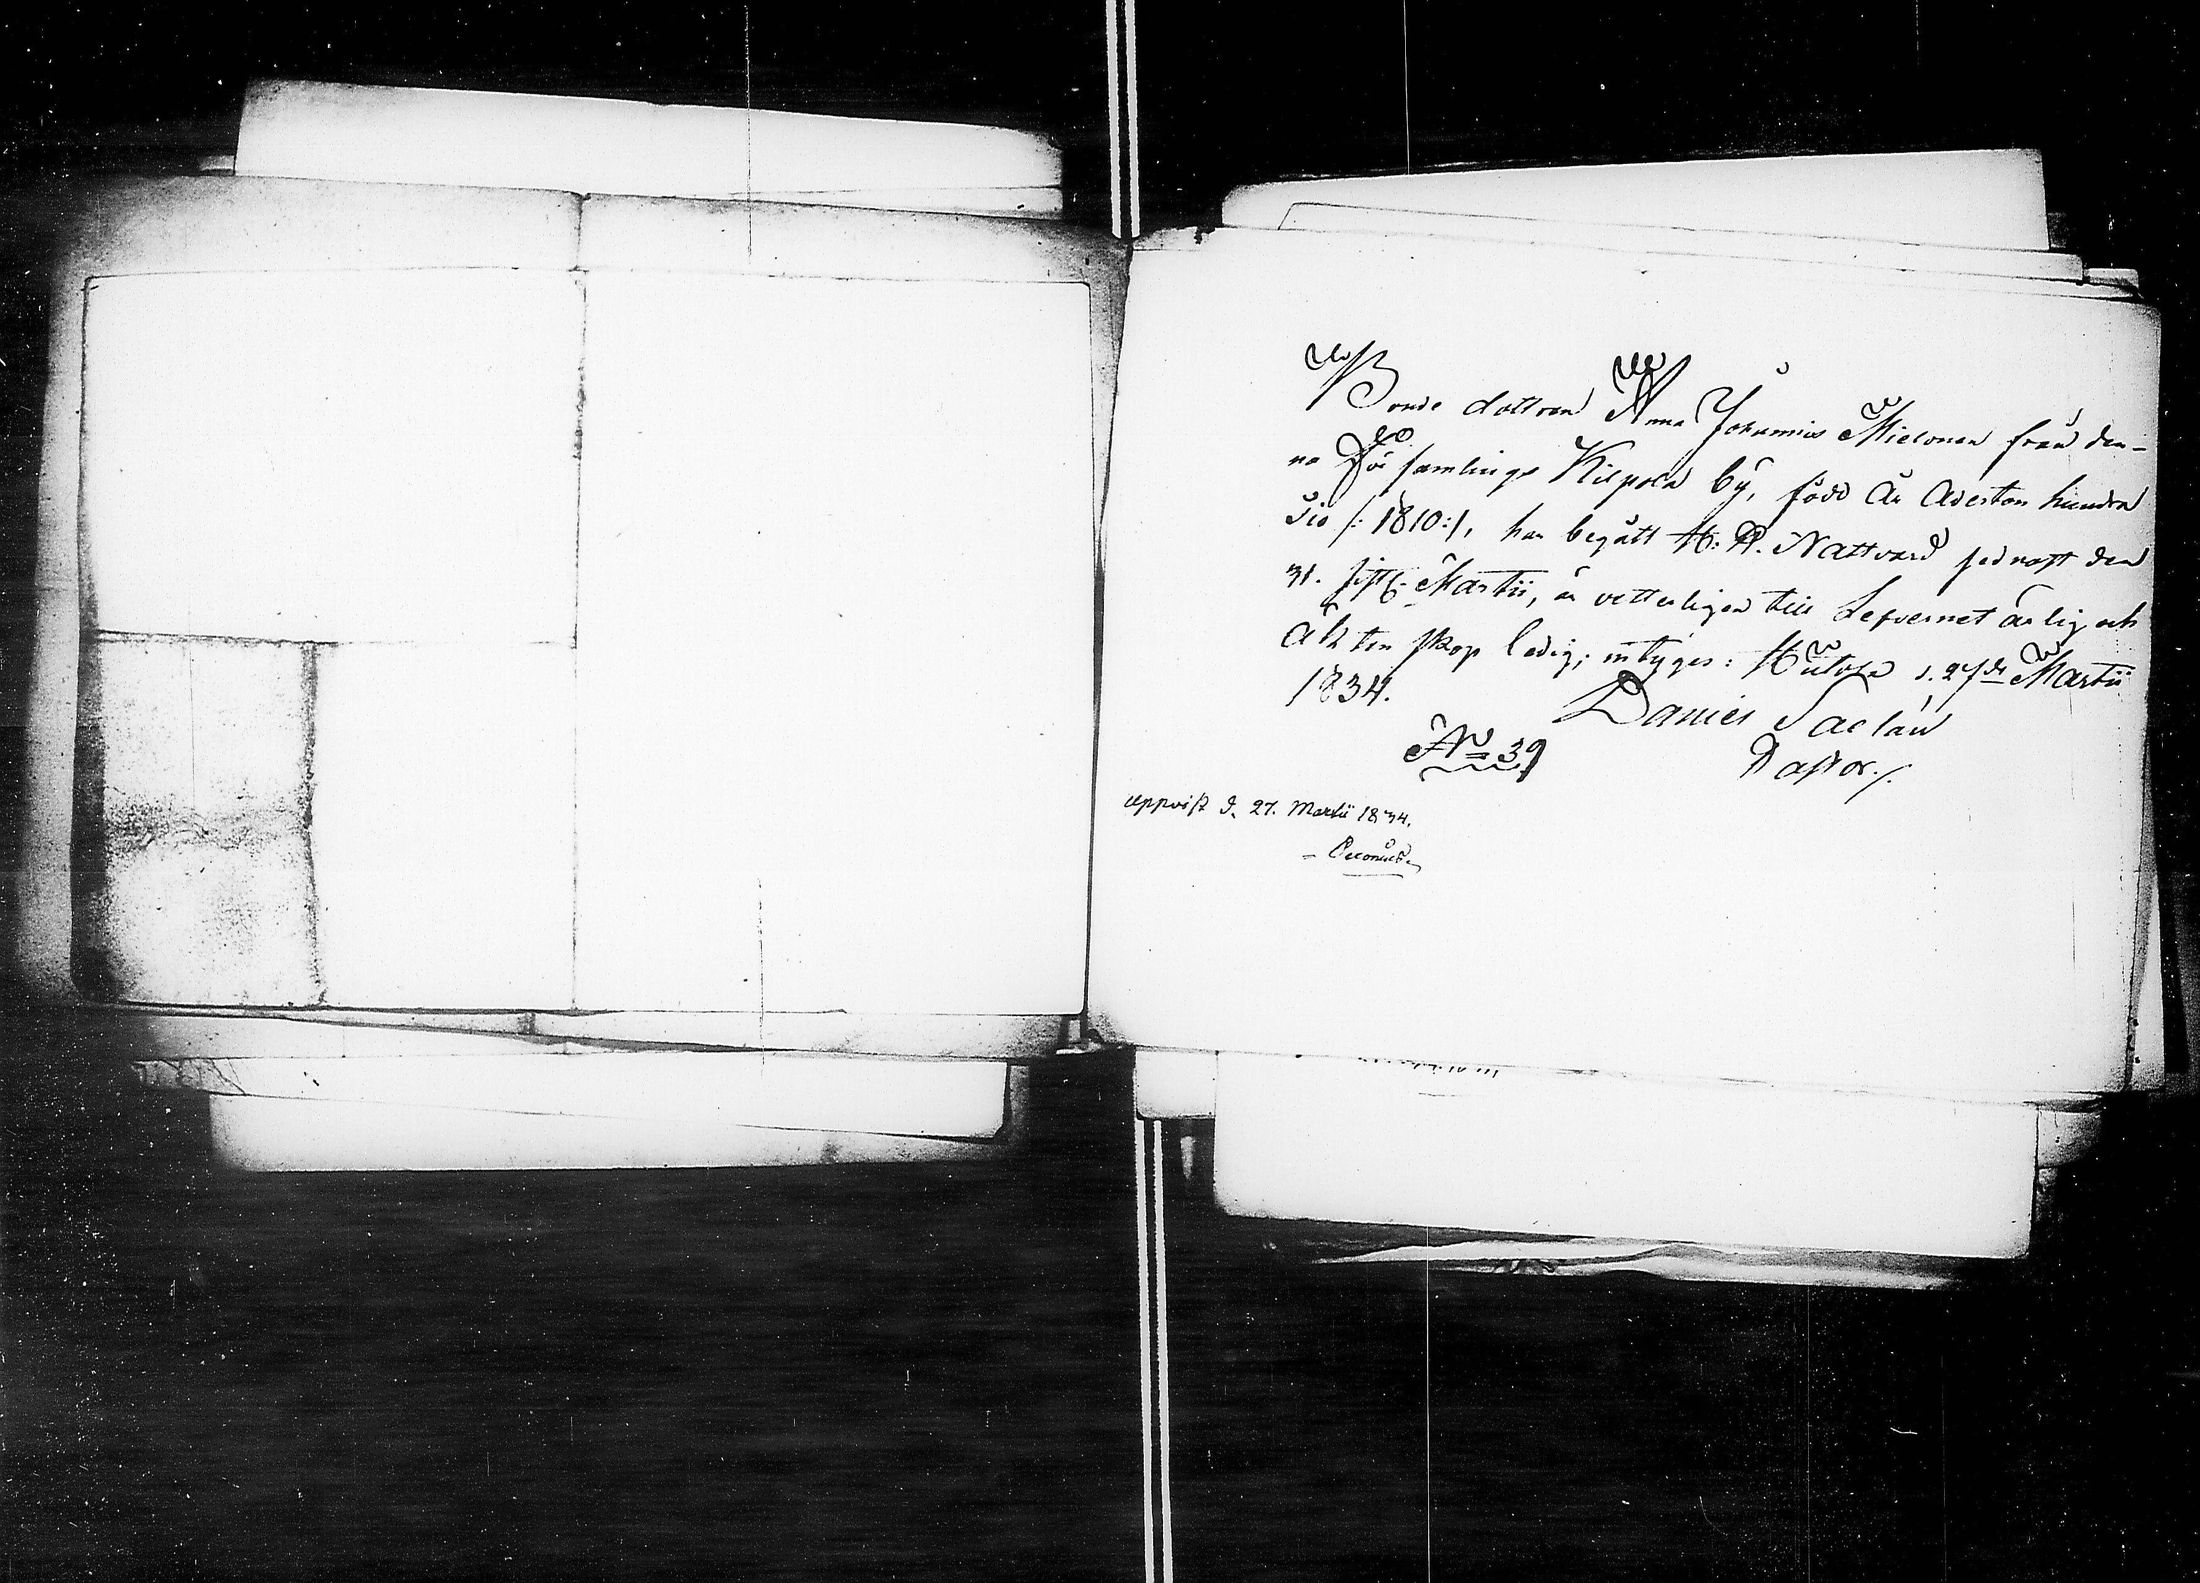 Bonde dottren Anna Johannis Mielonen från den-
na Församlings Kilpola by, född År Aderton hundra
Tio /: 1810:/, har begått H. H. Nattvard sednast den
31. sistl. Martii, är vetterligen till Lefvernet ärlig och
äktenskap ledig; intyges: Hiitola d. 27de Martii
1834.
Daniel Saelan
Pastor./.
No 39
uppvist d. 27. Martii 1834.